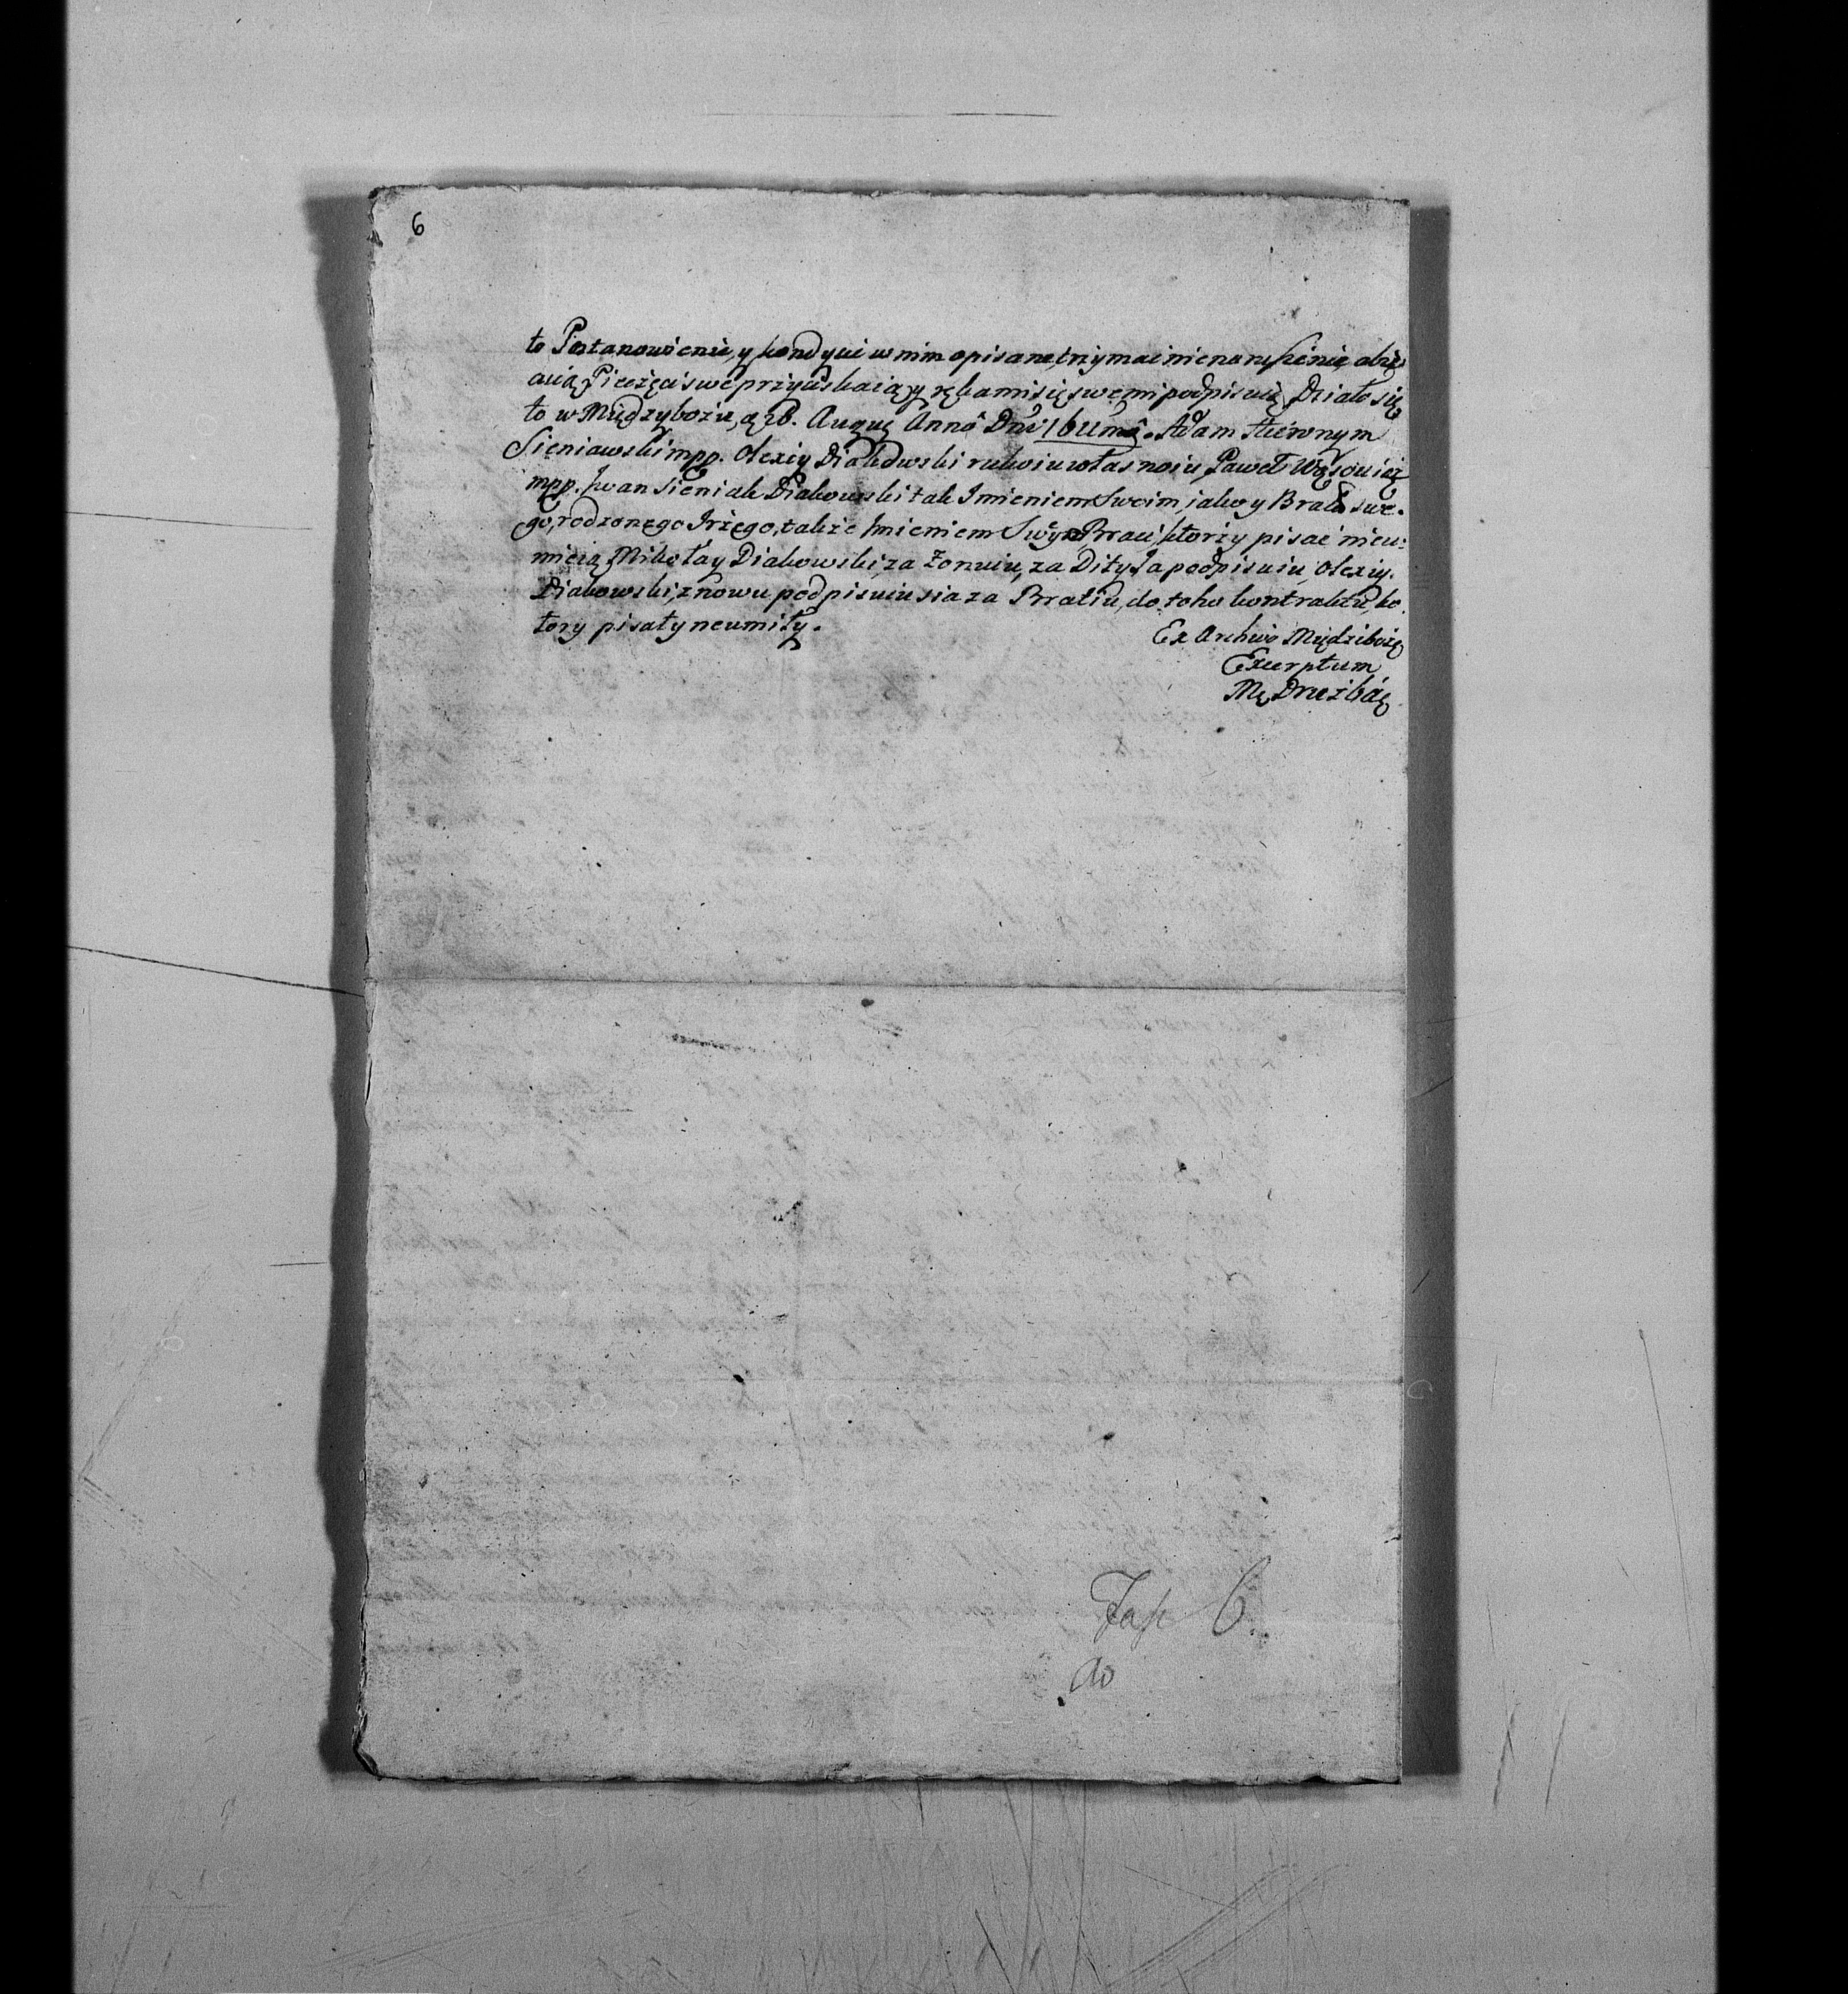 6
to Postanowienie, y kondycie w nim opisane, trzymać nienaruszenie obie-
cuią Pieczęci swe przyciskaią, y rękami się swemi podpisuią, Działo się
to w Międzybożu, d. 28. Augus. Annô Dnî 16 Adam Hieronym
Sieniawski mpp. Olexiy Diakowski rukoiu własnoiu, Paweł Wąsowicz
mpp. Iwan Sieniak Diakowski tak Imieniem Swoim, iako y Brata swe-
go, rodzonego Irzego, także Imieniem Swym Braci, ktorzy pisać nieu-
mieią, Mikołay Diakowski, za Zonuiu, za Dity, Ia podpisuiu, Olexiy
Diakowski, znowu podpisuiu sia za Bratiu, do toho kontraktu, ko-
tory pisaty neumiły.
Ex Archivo Międziboż
Excerptum
6